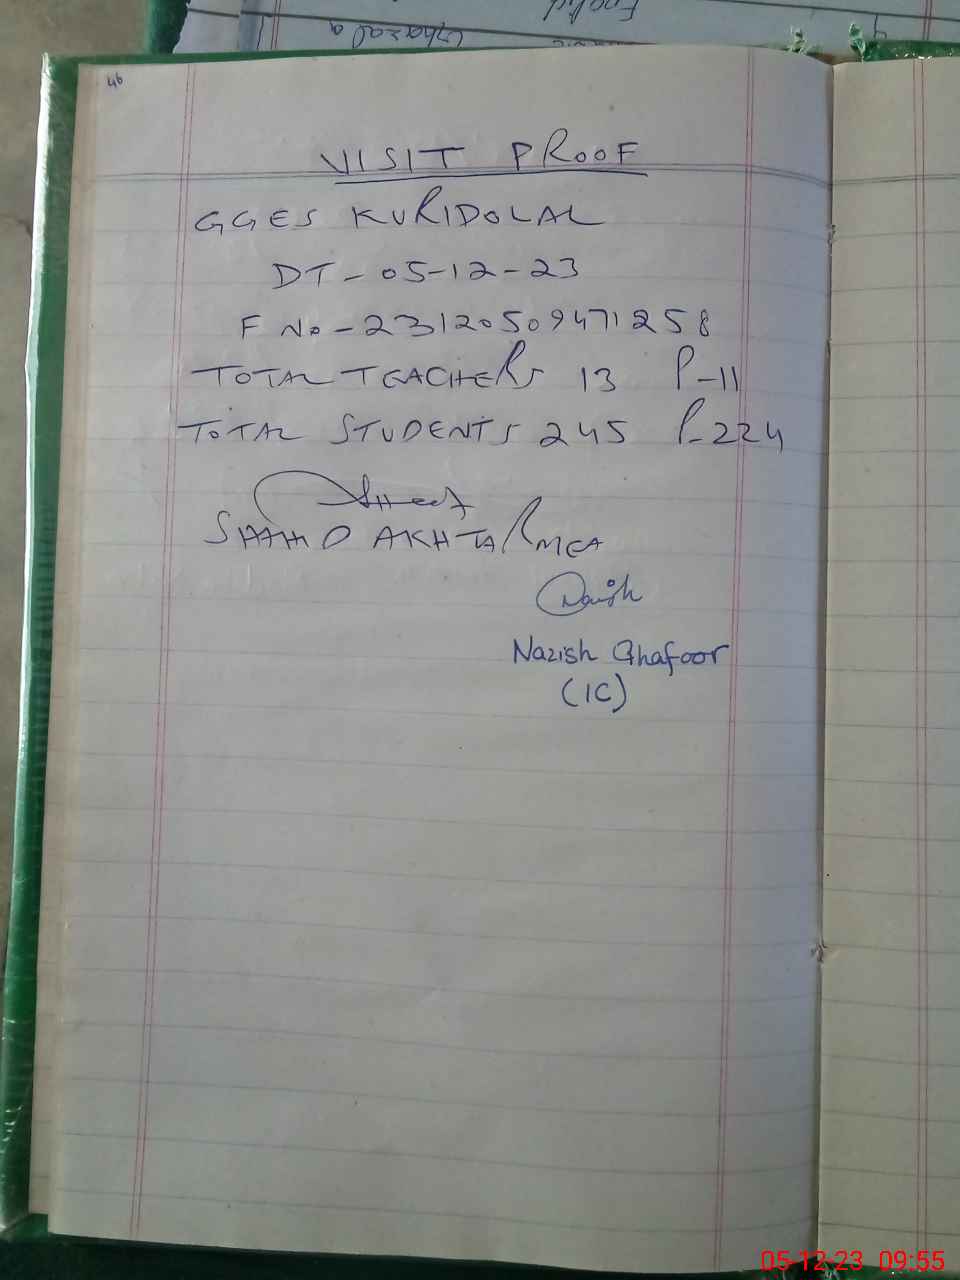 English
Ghazala
46
VISIT PROOF
GGES KURIDOLAL
DT - 05-12-23
F No - 23120509471258
TOTAL TEACHERS 13 P-11
TOTAL STUDENTS 245 P-224
SHAHID AKHTAR MEA
Nazish
Nazish Ghafoor
(IC)
05-12-23 09:55